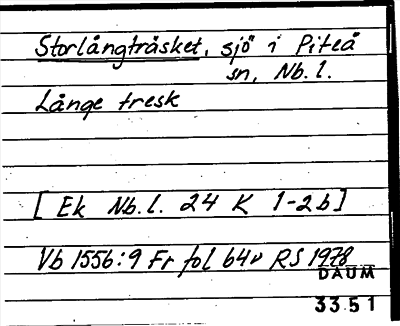 Storlångträsket, sjö i Piteå
sn, Nb.l.
Långe tresk
[ Ek Nb.l. 24 K 1-2b]
Vb 1556:9 Fr fol 64v RS 1978
DAUM
33.51